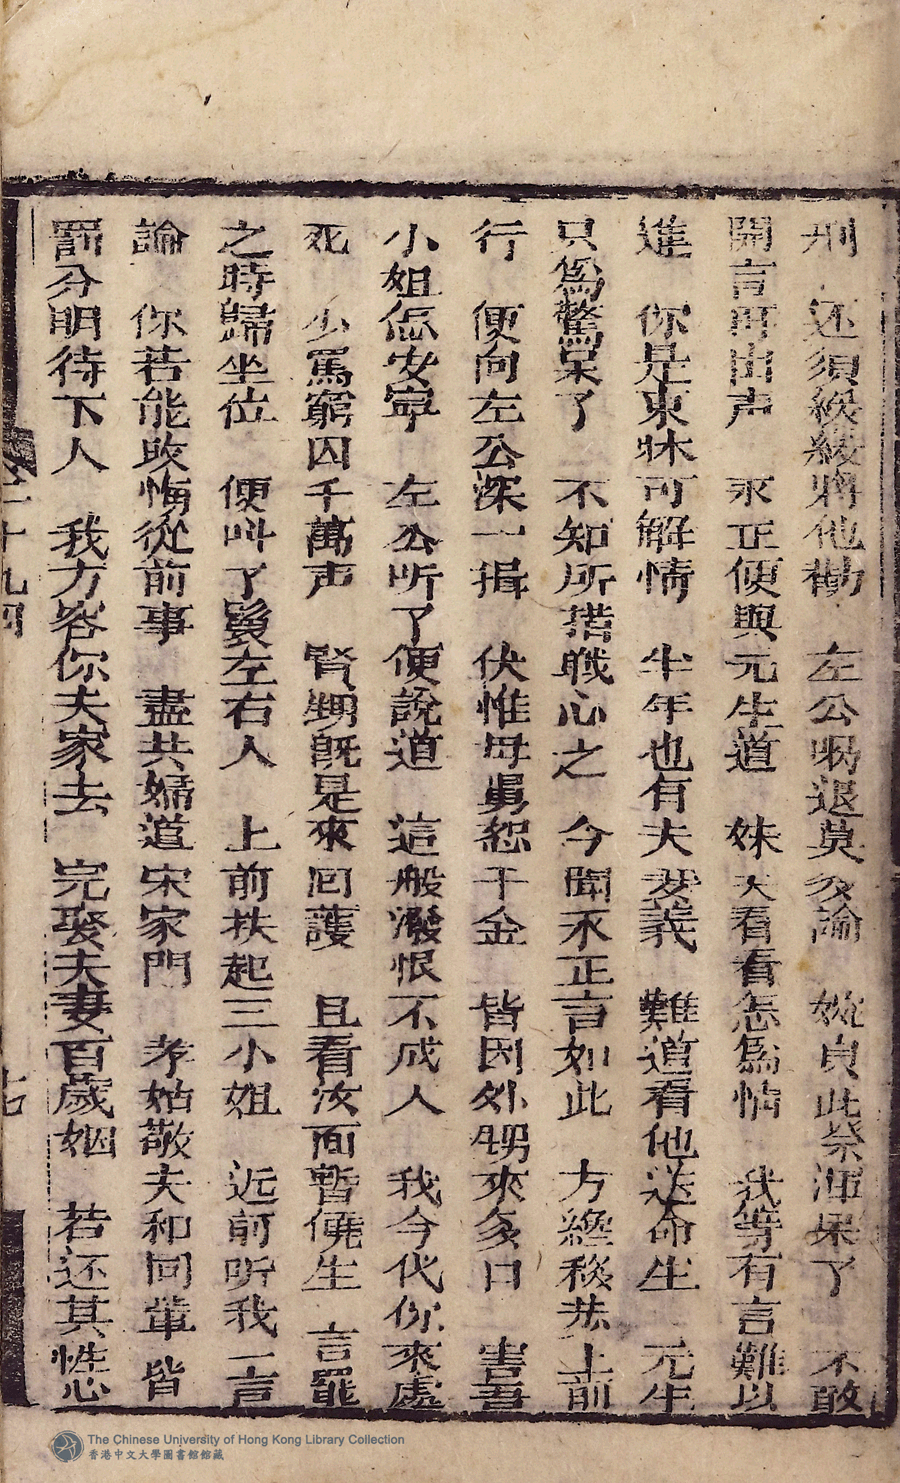 刑　还須緩緩將他勸　左公喝退莫多論　婉貞此祭渾呆了　不敢
開言再出声　永正便與元生道　妹夫看看怎爲情　我等有言難以
進　你是東牀可解情　半年也有夫妻義　難道看他送命生　元生
只爲驚呆了　不知所措戰心之　今聞永正言如此　方纔移恭上前
行　便向左公深一揖　伏惟母舅恕千金　皆因外甥來多口　害吾
小姐怎安寧　左公听了便說道　這般潑恨不成人　我今代你來處
死　少罵窮囚千萬声　賢甥既是來回護　且看汝面暫僥生　言罷
之時歸坐位　便叫了鬟左右人　上前扶起三小姐　近前听我一言
論　你若能改悔從前事　盡共婦道宋家門　孝姑敬夫和同輩　皆
罰分明待下人　我方容你夫家去　完娶夫妻百歲姻　若还其性心
二十九回
七
The Chinese University of Hong Kong Library Collection
香港中文大學圖書館館藏